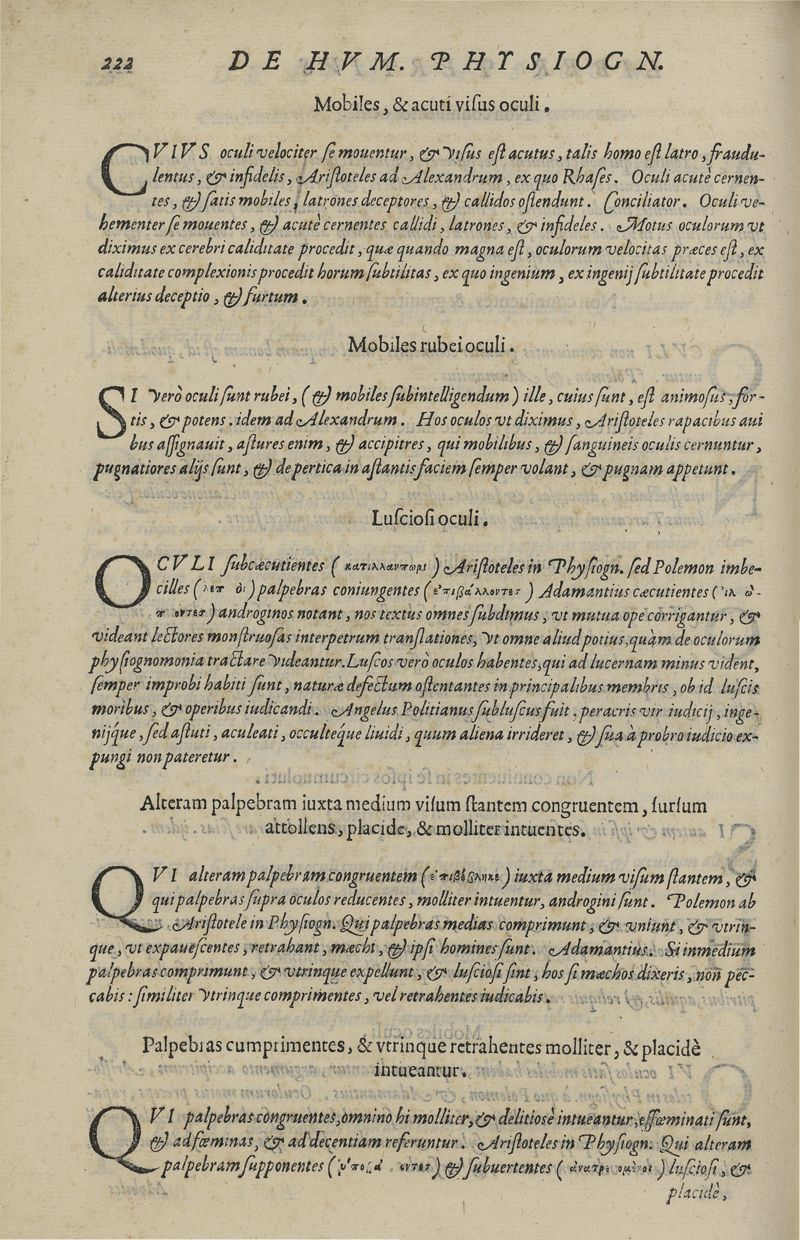 222 DE HVM. PHYSIOGN.
Mobiles, & acuti viſus oculi.
CVIVS oculi velociter ſe mouentur, & viſus eſt acutus, talis homo eſt latro, fraudu-
lentus, & infidelis, Ariſtoteles ad Alexandrum, ex quo Rhaſes. Oculi acutè cernen-
tes, & ſatis mobiles, latrones deceptores, & callidos oſtendunt. Conciliator. Oculi ve-
hementer ſe mouentes, & acutè cernentes callidi, latrones, & infideles. Motus oculorum vt
diximus ex cerebri caliditate procedit, quæ quando magna eſt, oculorum velocitas præces eſt, ex
caliditate complexionis procedit horum ſubtilitas, ex quo ingenium, ex ingenij ſubtilitate procedit
alterius deceptio, & furtum.
Mobiles rubei oculi.
SI verò oculi ſunt rubei, (& mobiles ſubintelligendum) ille, cuius ſunt, eſt animoſus, for-
tis, & potens. idem ad Alexandrum. Hos oculos vt diximus, Ariſtoteles rapacibus aui
bus aſſignauit, aſtures enim, & accipitres, qui mobilibus, & ſanguineis oculis cernuntur,
pugnatiores alijs ſunt, & de pertica in aſtantis faciem ſemper volant, & pugnam appetunt.
Luſcioſi oculi.
OCVLI ſubcæcutientes ( ) Ariſtoteles in Phyſiogn. ſed Polemon imbe-
cilles ( ) palpebras coniungentes (ἐπιβάλλοντες) Adamantius cæcutientes (
) androginos notant, nos textus omnes ſubdimus, vt mutua ope corrigantur, &
videant lectores monſtruoſas interpetrum tranſlationes, vt omne aliud potius, quàm de oculorum
phyſiognomonia tractare videantur. Luſcos verò oculos habentes, qui ad lucernam minus vident,
ſemper improbi habiti ſunt, naturæ defectum oſtentantes in principalibus membris, ob id luſcis
moribus, & operibus iudicandi. Angelus Politianus ſubluſcus fuit, peracris vir iudicij, inge-
nijque, ſed aſtuti, aculeati, occulteque liuidi, quum aliena irrideret, & ſua à probro iudicio ex-
pungi non pateretur.
Alteram palpebram iuxta medium viſum ſtantem congruentem, ſurſum
attollens, placide, & molliter intuentes.
QVI alteram palpebram congruentem ( ) iuxta medium viſum ſtantem, &
qui palpebras ſupra oculos reducentes, molliter intuentur, androgini ſunt. Polemon ab
Ariſtotele in Phyſiogn. Qui palpebras medias comprimunt, & vniunt, & vtrin-
que, vt expaueſcentes, retrahant, mæchi, & ipſi homines ſunt. Adamantius. Si in medium
palpebras comprimunt, & vtrinque expellunt, & luſcioſi ſint, hos ſi mæchos dixeris, non pec-
cabis: ſimiliter vtrinque comprimentes, vel retrahentes iudicabis.
Palpebras cumprimentes, & vtrinque retrahentes molliter, & placidè
intueantur.
QVI palpebras congruentes, omnino hi molliter, & delitiosè intueantur, effœminati ſunt,
& ad fœminas, & ad decentiam referuntur. Ariſtoteles in Phyſiogn. Qui alteram
palpebram ſupponentes ( ) & ſubuertentes ( ) luſcioſi, &
placidè,